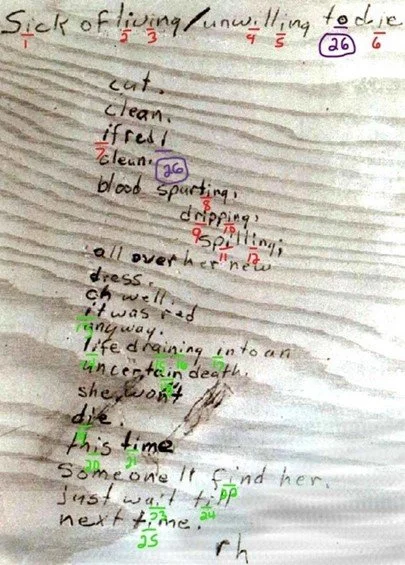 Sick of living / unwilling to die
1 2 3 4 5 26 6
cut.
clean.
if red /
7
clean. 26
blood spurting,
8
dripping,
9 10
spilling;
11 12
all over her new
dress.
oh well.
it was red
anyway.
life draining into an
uncertain death.
she won't
die.
this time
20 21
Someone ll find her.
just wait till
23 24
next time.
25
rh